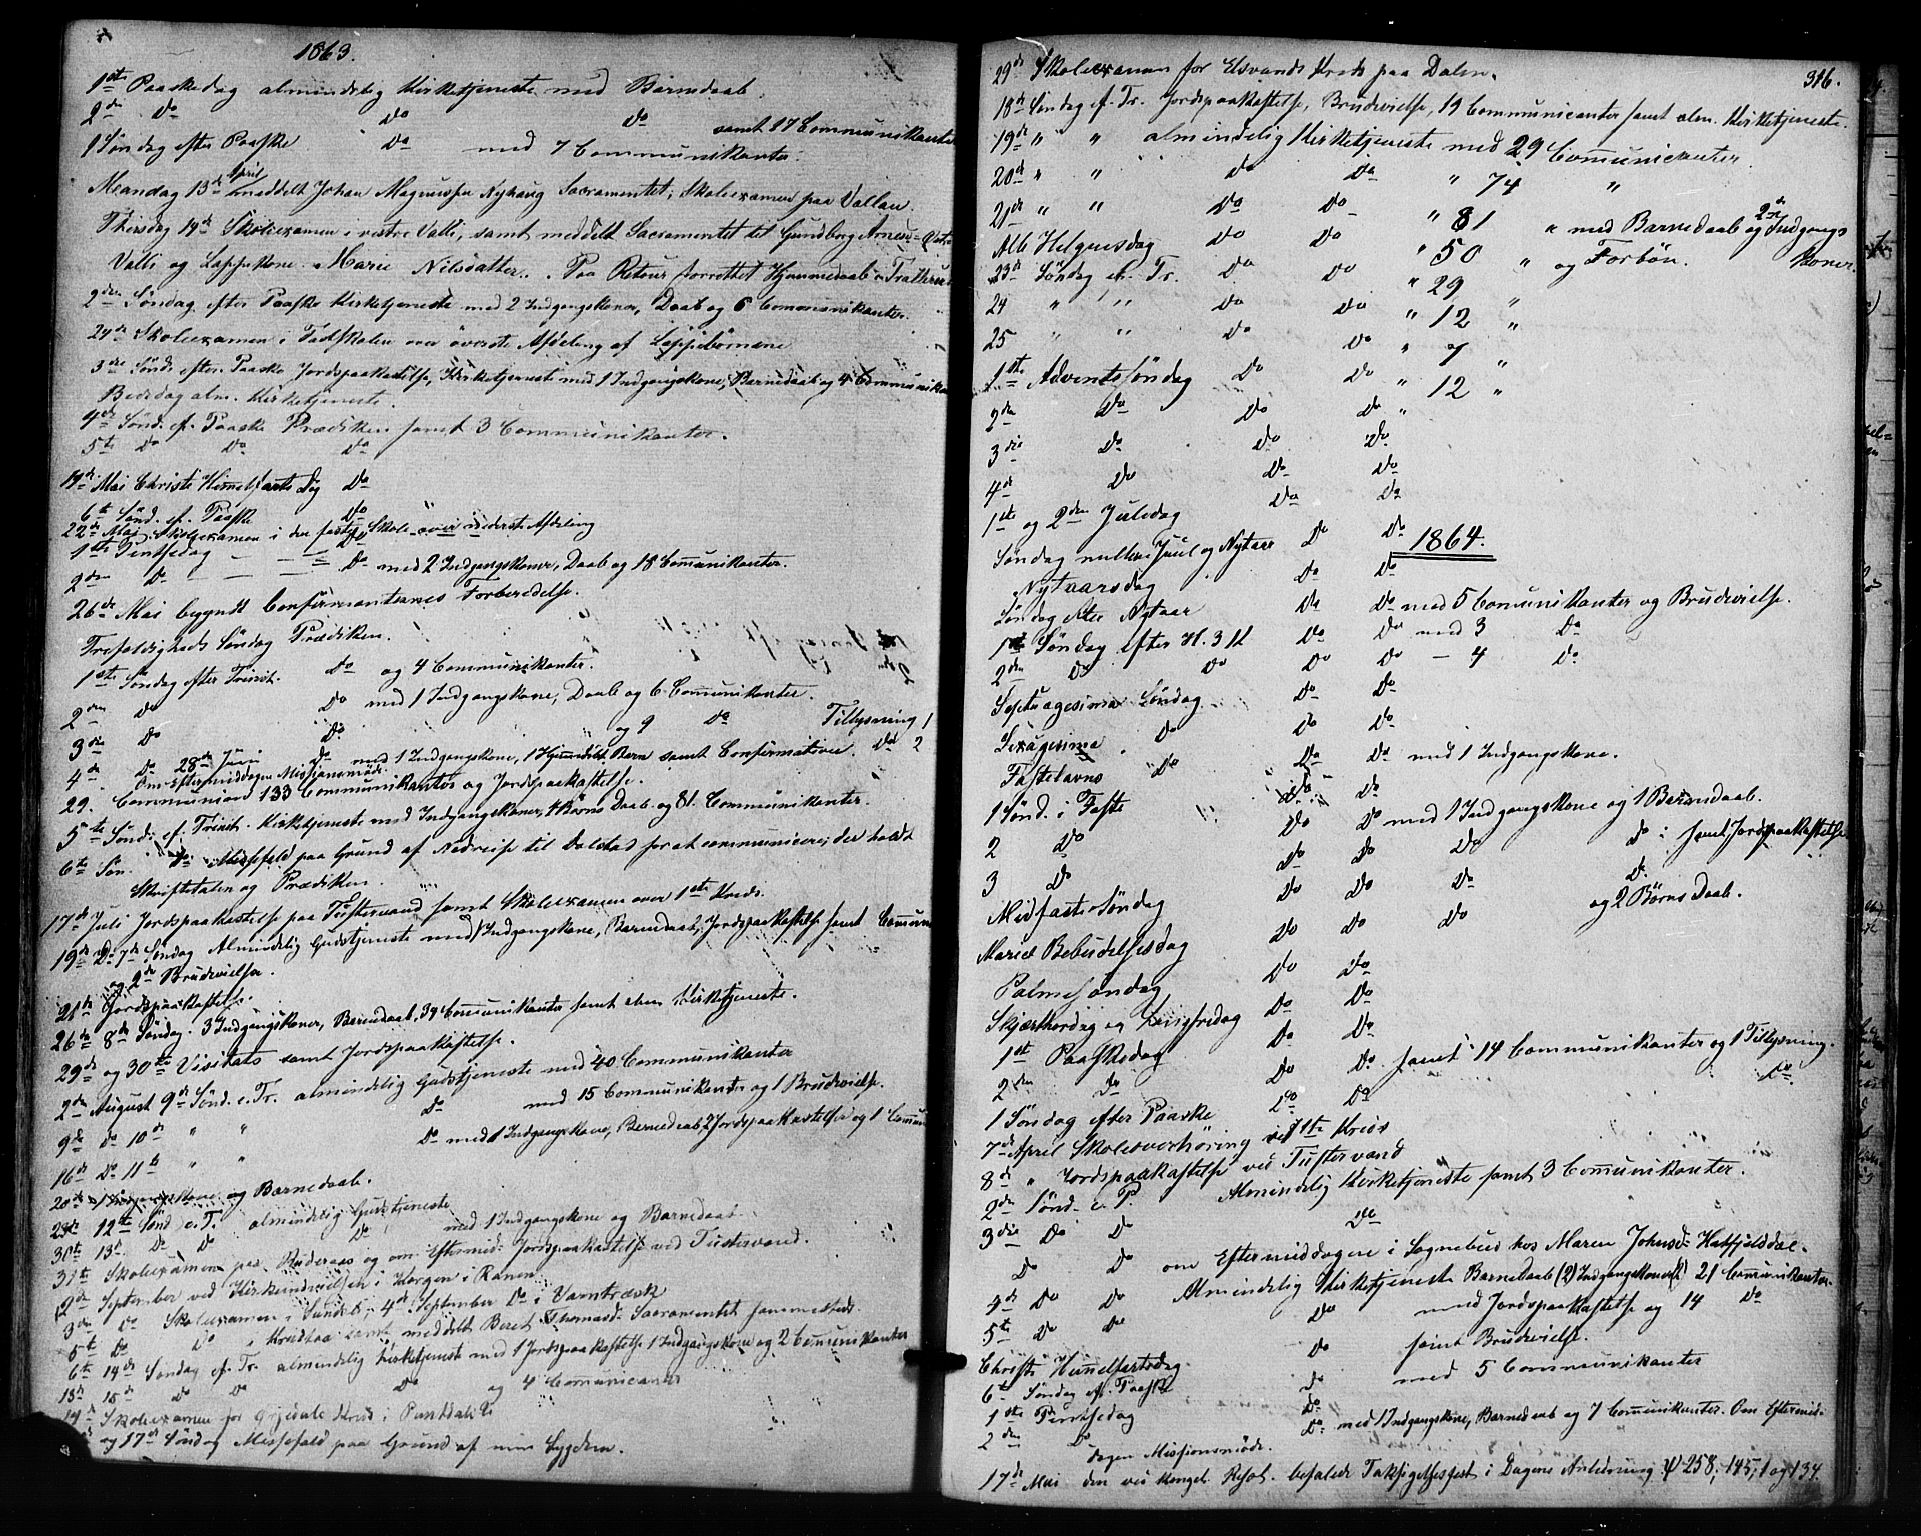 1863.
1ste Paaskedag almindelig Kirketjeneste med Barnedaab.
2den Do Do Do samt 17 Communikanter
1 Søndag efter Paaske Do med 7 Communikanter.
April
Mandag 13de meddelt Johan Magnussen Nyhaug Sacramentet, Skoleexamen paa Vallan
Thirsdag 14de Skoleexamen i vestre Valli, samt meddelt Sacramentet til Gundborg
Valli og Lappekone Marie Nilsdatter. Paa Retour forrettet Hjemmedaab i
2den Søndag efter Paaske Kirketjeneste med 2 Indgangskoner, Daab og 6 Communikanter.
24de Skoleexamen i Fastskolen over øverste Afdeling af Lappebørnene
3die Sønd. efter Paaske Jordspaakastelse, Kirketjeneste med 1 Indgangskone, Barnedaab og 4 Communika
Bededag alm. Kirketjeneste.
4de Sønd. ef. Paaske Prædiken samt 3 Communikanter.
5te Do Do Do
14de Mai Christi Himmelfarts Dag Do
6te Sønd. ef. Paaske Do
22de Mai Skoleexamen i den faste Skole over nederste Afdeling
1ste Pintsedag Do
2den Do Do med 2 Indgangskoner, Daab og 18 Comunikanter.
26de Mai begyndt Confirmanternes Forberedelse.
Trefoldigheds Søndag Prædiken.
1ste Søndag efter Trinit. Do og 4 Communikanter.
2den Do Do med 1 Indgangskone, Daab og 6 Comunikanter.
3die Do Do og 9 Do Tillysning 1
4de Do 28de Juni Do med 1 Indgangskone, 1 Hjemdøbt Barn samt Confirmation. Do 2
Om Eftermiddagen Missionsmøde
29. Communion 133 Communikanter og Jordspaakastelse.
5te Sønd. ef. Trinit. Kirketjeneste med Indgangskoner, 4 Børns Daab og 81 Communikanter.
6te Søn. Do Messefald paa Grund af Nedreise til Dolstad for at communicere; der holdt
Skriftetalen og Prædiken.
17de Juli Jordspaakastelse paa Tustervand samt Skoleexamen over 1ste Kreds.
19de Do 7de Søndag Almindelig Gudstjeneste med 1 Indgangskone, Barnedaab, 2 Jordspaakastelse samt Commun
og 2de Brudevielser.
21de Jordspaakastelse.
26de 8de Søndag. 3 Indgangskoner, Barnedaab, 39 Comunikanter samt alm Kirketjeneste.
29de og 30te Visitats samt Jordspaakastelse.
2den August 9de Sønd. e. Tr. almindelig Gudstjeneste med 40 Communikanter
9de Do 10de " " Do med 15 Communikanter og 1 Brudevielse.
16de Do 11te " " Do med 1 Indgangskone, Barnedaab 2 Jordspaakastelser og 1 Comun
20de 1 Indgangskone og Barnedaab.
23de 12te Sønd e. T. almindelig Gudstjeneste
30te 13de Do Do Do med 1 Indgangskone og Barnedaab
31te Skoleexamen paa Røderaas og om Eftermid. Jordspaakastelse ved Tustervand.
2den September ved Kirkeindvielsen i Korgen i Ranen
3die Do Skoleexamen i 4de September Do i Vamtræsk
5te Do Do i Krutaa samt meddelt Beret Thomasd. Sacramentet sammesteds.
6te 14de Søndag ef. Tr. almindelig Kirketjeneste med 1 Jordspaakastelse 1 Indgangskone og 2 Comunikanter
13de 15de Do Do Do og 4 Comunicanter
14de Skoleexamen for Kreds i
og 17de Søndag Messefald paa Grund af min Sygdom.
316.
29de Skoleexamen for Elsvands Kreds paa Dalen.
18de Søndag ef. Tr. Jordspaakastelse, Brudevielse, 19 Communicanter samt alm. Kirketjeneste.
19de " " almindelig Kirketjeneste med 29 Comunicanter
20de " " Do Do " 74 "
21de " " Do Do " 81 " med Barnedaab og 2de Indgangs
Koner.
Alle Helgensdag Do Do " 50 " og Forbøn.
23de Søndag ef. Tr. Do Do " 29 "
24 " " Do Do " 12 "
25 " " Do Do " 7 "
1ste Adventssøndag Do Do " 12 "
2den Do Do Do "
3die Do Do Do
4de Do Do Do
1ste og 2den Juledag Do Do
Søndag mellem Juul og Nytaar Do Do 1864.
Nytaarsdag Do Do
Søndag efter Nytaar Do Do med 5 Comunikanter og Brudevielse.
1ste Søndag efter H. 3 K Do Do med 3 Do
2den Do Do Do Do – 4 Do
Septuagesima Søndag Do Do
Sexagesima Do Do Do
Fastelavns Do Do Do med 1 Indgangskone.
1 Sønd. i Faste Do Do
2 Do Do Do med 1 Indgangskone og 1 Barnedaab.
3 Do Do Do Do Do samt Jordspaakastelse
Midfaste Søndag Do Do Do Do
Mariæ Bebudelsesdag Do Do Do og 2 Børns Daab.
Palmesøndag Do Do
Skjærthorsdag og Langfredag Do Do
1ste Paaskedag Do Do
2den Do Do Do samt 14 Communikanter og 1 Tillysning.
1 Søndag efter Paaske Do Do Do
7de April Skoleoverhøring ved 1ste Kreds
8de " Jordspaakastelse ved Tustervand
2den Sønd. e. P. Almindelig Kirketjeneste samt 3 Comunikanter.
3die Do Do Do
Do Do om Eftermiddagen i Sognebud hos Maren Johnsd. Hatfjelddal.
4de Do Do Almindelig Kirketjeneste Barnedaab (2) Indgangskoner () 21 Comunikanter
5te Do Do Do med Jordspaakastelse og 14 Do
Christi Himmelfartsdag Do samt Brudevielse.
6te Søndag ef. Paaske Do med 5 Communikanter
1ste Pintsedag Do
2den Do Do med 1 Indgangskone, Barnedaab og 7 Comunikanter. Om Eftermid-
dagen Missionsmøde.
17de Mai den ved Kongel. Resol. befalede Taksigelsesfest i Dagens Anledning ψ 258, 145, 1 og 134.